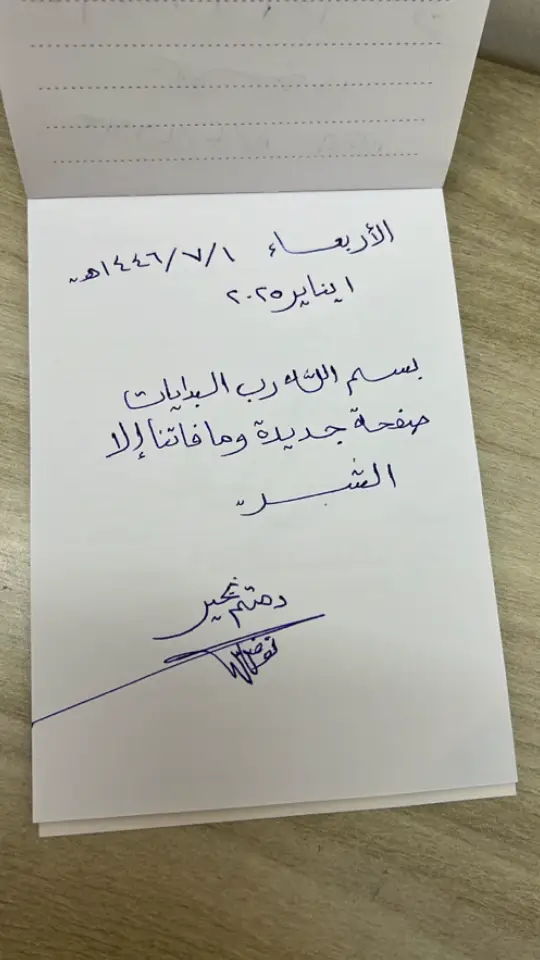 الأربعاء ١/٧/١٤٤٦هـ
١ يناير ٢٠٢٥
بسم الله رب البدايات
صفحة جديدة وما فاتنا إلا
الشر.
دمتم بخير